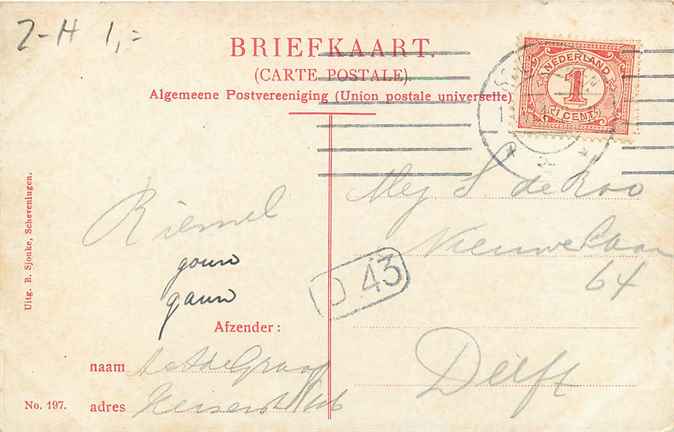 Z-H 1,=
BRIEFKAART.
(CARTE POSTALE).
Algemeene Postvereeniging (Union postale universelle)
NEDERLAND
1
CENT
Mej S. de Roo
Nieuwe Laan
64
Delft
D 43
Riemel
gouw
gauw
Afzender:
naam de Graaf
adres
No. 197.
Uitg. R. Sjouke, Scheveningen.